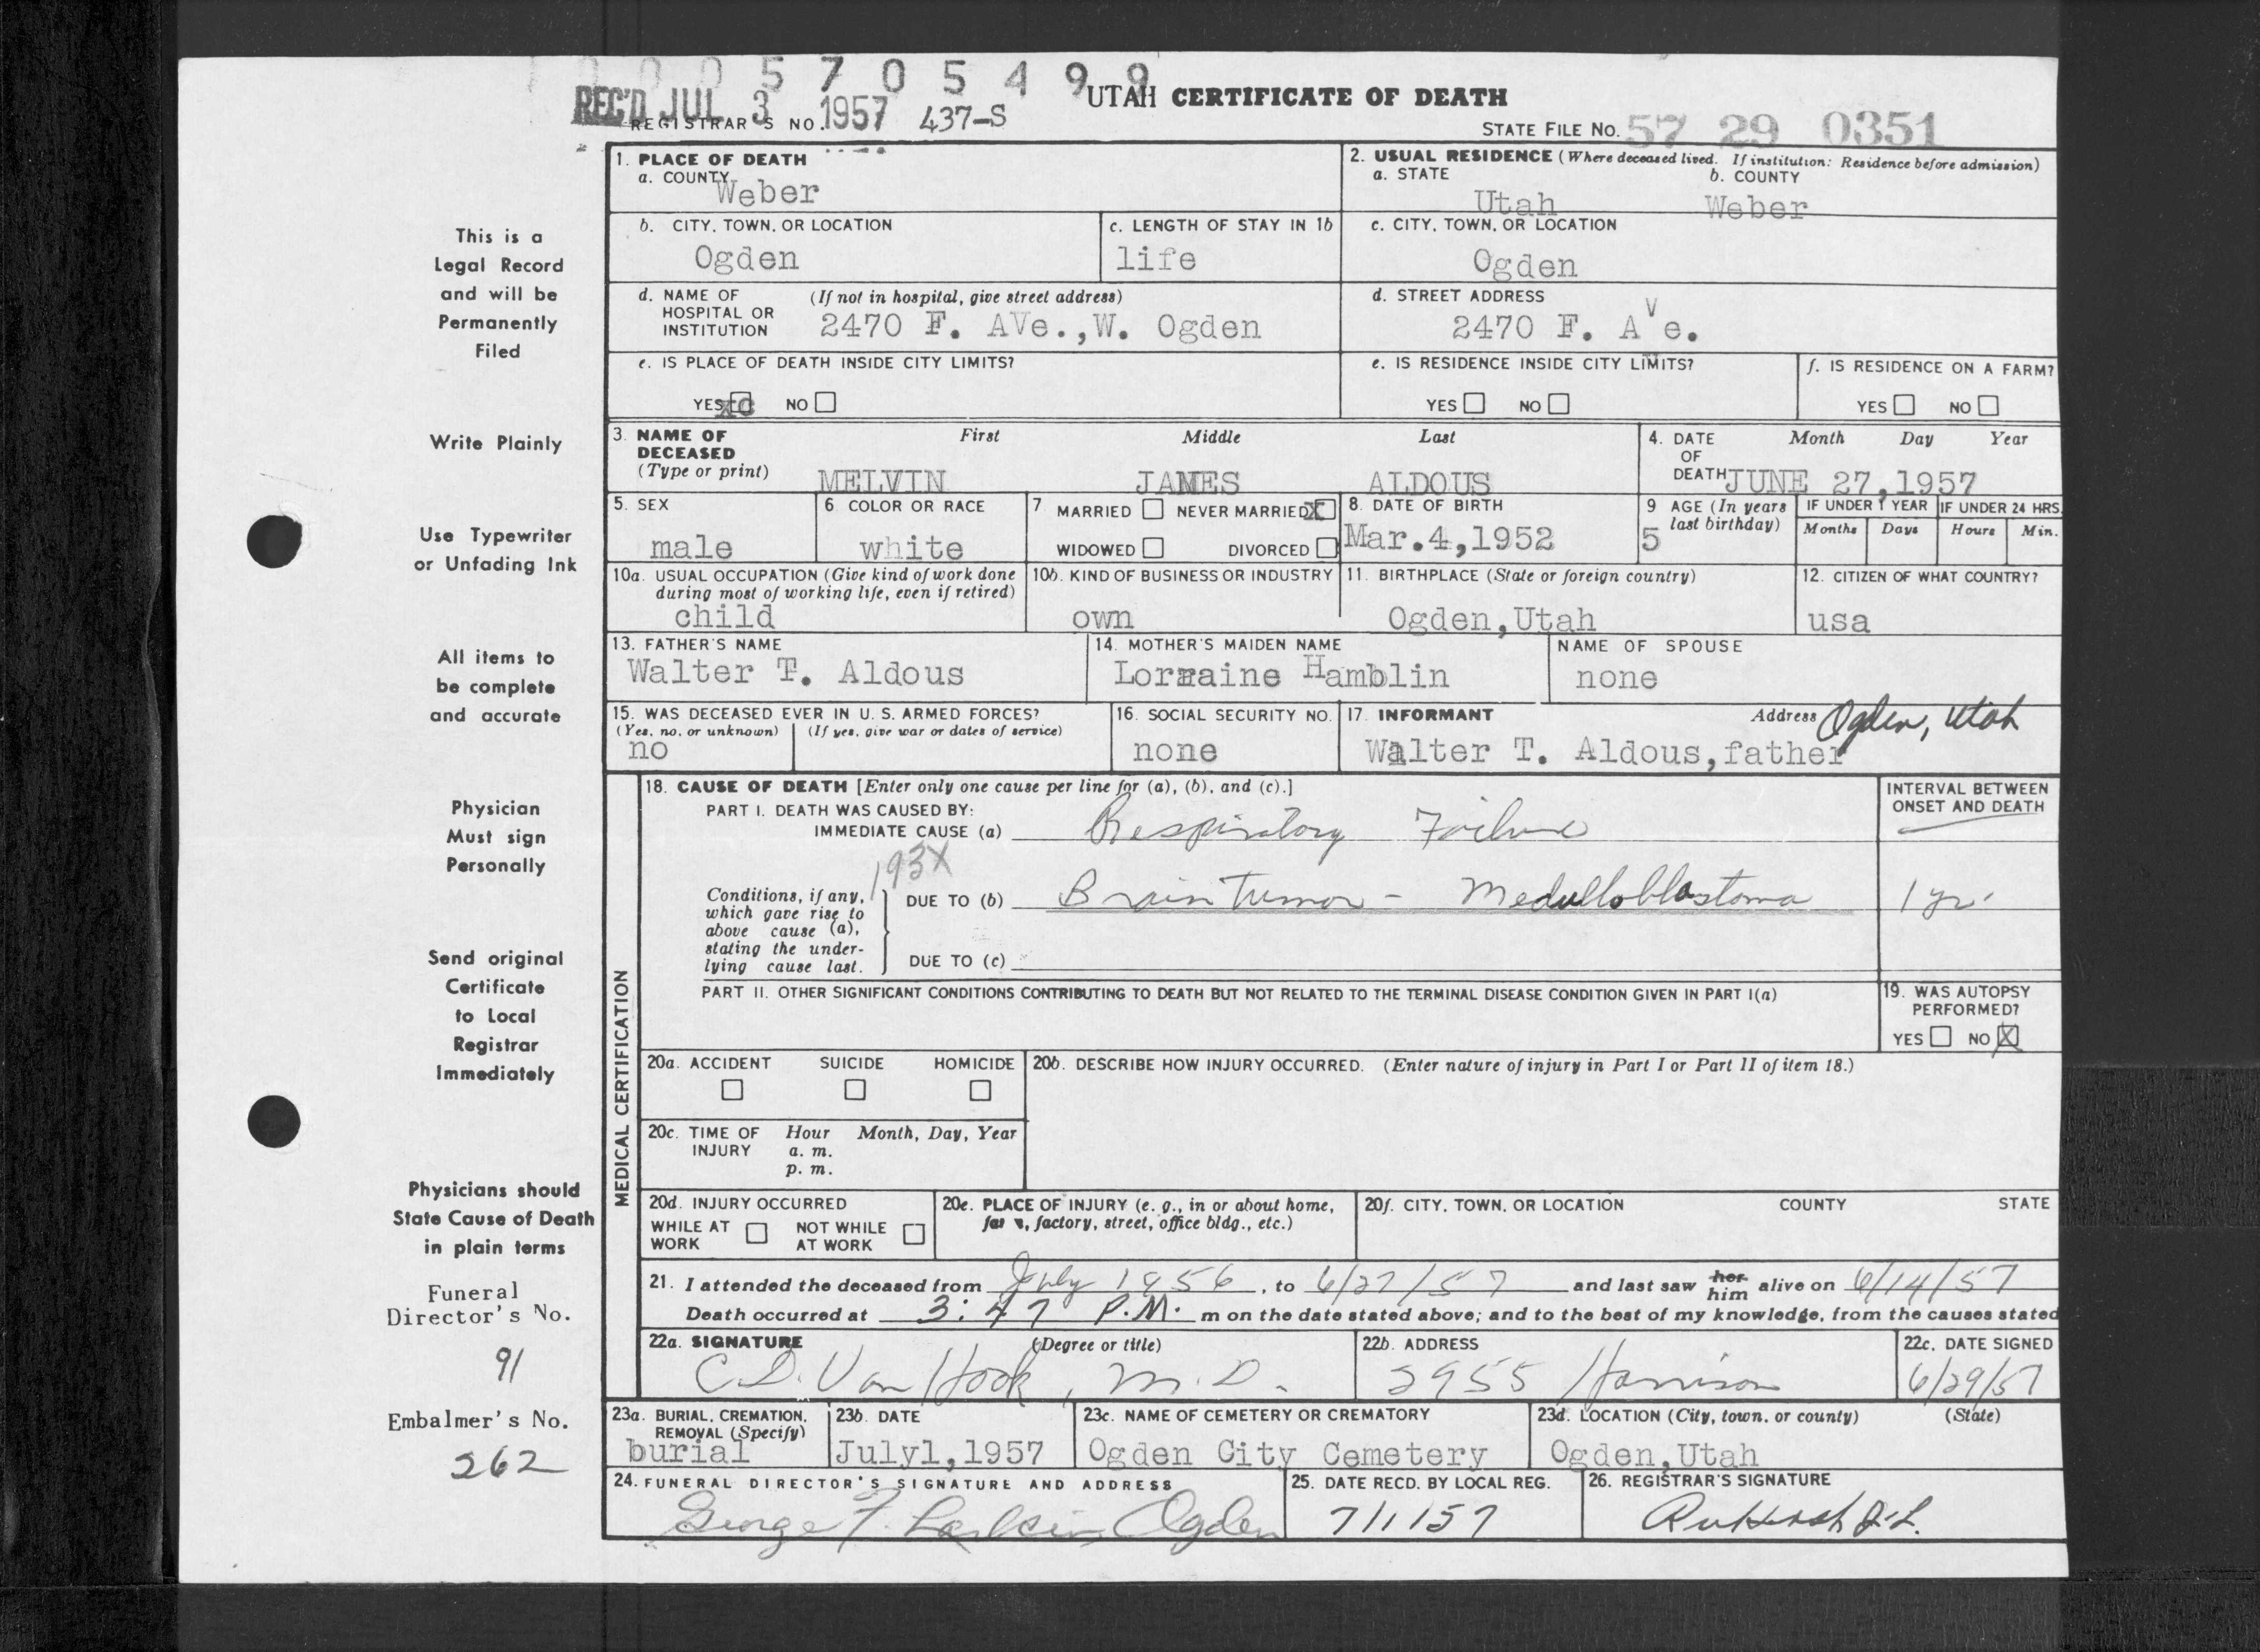 0005705499
REC'D JUL 3 1957
UTAH CERTIFICATE OF DEATH
REGISTRAR'S NO. 437-S
STATE FILE NO. 57 29 0351
This is a
Legal Record
and will be
Permanently
Filed
Write Plainly
Use Typewriter
or Unfading Ink
All items to
be complete
and accurate
Physician
Must sign
Personally
Send original
Certificate
to Local
Registrar
Immediately
Physicians should
State Cause of Death
in plain terms
Funeral
Director's No.
91
Embalmer's No.
262
1. PLACE OF DEATH
a. COUNTY
Weber
2. USUAL RESIDENCE (Where deceased lived. If institution: Residence before admission)
a. STATE b. COUNTY
Utah Weber
b. CITY, TOWN, OR LOCATION
Ogden
c. LENGTH OF STAY IN 1b
life
c. CITY, TOWN, OR LOCATION
Ogden
d. NAME OF (If not in hospital, give street address)
HOSPITAL OR
INSTITUTION 2470 F. AVe.,W. Ogden
d. STREET ADDRESS
2470 F. AVe.
e. IS PLACE OF DEATH INSIDE CITY LIMITS?
YES NO
e. IS RESIDENCE INSIDE CITY LIMITS?
YES NO
f. IS RESIDENCE ON A FARM?
YES NO
3. NAME OF First Middle Last
DECEASED
(Type or print) MELVIN JAMES ALDOUS
4. DATE Month Day Year
OF
DEATH JUNE 27,1957
5. SEX
male
6 COLOR OR RACE
white
7 MARRIED NEVER MARRIED X
WIDOWED DIVORCED
8. DATE OF BIRTH
Mar.4,1952
9 AGE (In years
last birthday)
5
IF UNDER 1 YEAR
Months Days
IF UNDER 24 HRS.
Hours Min.
10a. USUAL OCCUPATION (Give kind of work done
during most of working life, even if retired)
child
10b. KIND OF BUSINESS OR INDUSTRY
own
11. BIRTHPLACE (State or foreign country)
Ogden,Utah
12. CITIZEN OF WHAT COUNTRY?
usa
13. FATHER'S NAME
Walter T. Aldous
14. MOTHER'S MAIDEN NAME
Lorraine Hamblin
NAME OF SPOUSE
none
15. WAS DECEASED EVER IN U. S. ARMED FORCES?
(Yes, no, or unknown) (If yes, give war or dates of service)
no
16. SOCIAL SECURITY NO.
none
17. INFORMANT Address Ogden, Utah
Walter T. Aldous,father
MEDICAL CERTIFICATION
18. CAUSE OF DEATH [Enter only one cause per line for (a), (b), and (c).]
PART I. DEATH WAS CAUSED BY:
IMMEDIATE CAUSE (a) Respiratory Failure
INTERVAL BETWEEN
ONSET AND DEATH
193X
Conditions, if any,
which gave rise to
above cause (a),
stating the under-
lying cause last.
DUE TO (b) Brain Tumor - Medulloblastoma
1 yr.
DUE TO (c)
PART II. OTHER SIGNIFICANT CONDITIONS CONTRIBUTING TO DEATH BUT NOT RELATED TO THE TERMINAL DISEASE CONDITION GIVEN IN PART I(a)
19. WAS AUTOPSY
PERFORMED?
YES NO X
20a. ACCIDENT SUICIDE HOMICIDE
20b. DESCRIBE HOW INJURY OCCURRED. (Enter nature of injury in Part I or Part II of item 18.)
20c. TIME OF Hour Month, Day, Year
INJURY a. m.
p. m.
20d. INJURY OCCURRED
WHILE AT NOT WHILE
WORK AT WORK
20e. PLACE OF INJURY (e. g., in or about home,
farm, factory, street, office bldg., etc.)
20f. CITY, TOWN, OR LOCATION COUNTY STATE
21. I attended the deceased from July 1956, to 6/27/57 and last saw her him alive on 6/14/57
Death occurred at 3:47 P.M. m on the date stated above; and to the best of my knowledge, from the causes stated
22a. SIGNATURE (Degree or title)
C.D. Van Hook, M.D.
22b. ADDRESS
2955 Harrison
22c. DATE SIGNED
6/29/57
23a. BURIAL, CREMATION,
REMOVAL (Specify)
burial
23b. DATE
July1,1957
23c. NAME OF CEMETERY OR CREMATORY
Ogden City Cemetery
23d. LOCATION (City, town, or county) (State)
Ogden,Utah
24. FUNERAL DIRECTOR'S SIGNATURE AND ADDRESS
George F. Larkin, Ogden
25. DATE RECD. BY LOCAL REG.
7/1/57
26. REGISTRAR'S SIGNATURE